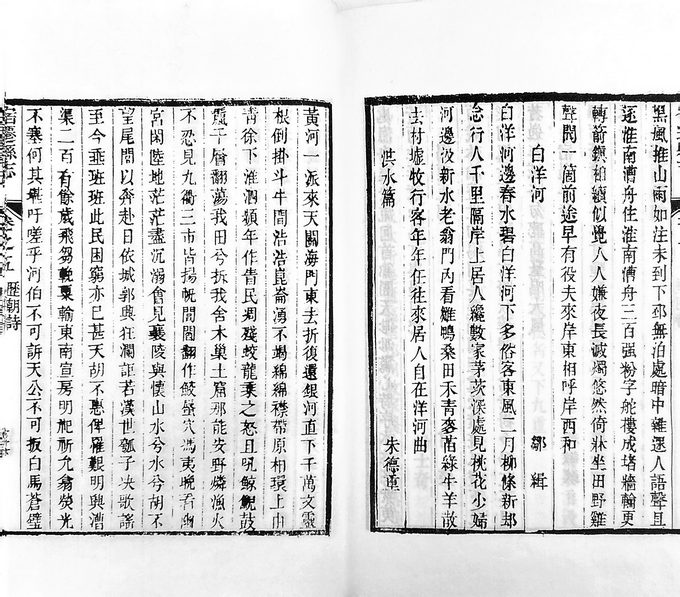 黑風推山雨如注未到下邳無泊處暗中雜遝人語聲且
逐淮南漕舟住淮南漕舟三百强粉字舵樓成堵牆翰更
轉箭鎖相續似覺人人嫌夜長滅燭悠然倚牀坐田野雞
聲聞一箇前途早有役夫來岸東相呼岸西和
白洋河 鄒緝
白洋河邊春水碧白洋河下多俗客東風二月柳條新却
念行人千里隔岸上居人纔數家茅茨深處見桃花少婦
河邊汲新水老翁門內看雛鴨桑田禾青麥苗綠牛羊散
去村墟牧行客年年任往來居人自在洋河曲
洪水篇 朱德重
黃河一派來天闕海門東去折復還銀河直下千萬丈靈
根倒掛斗牛間浩浩崑崙湧不竭綿綿襟帶原相環上由
青徐下淮泗頻年作眚民凋殘蛟龍乘之怒且吼鯨鯢鼓
鬣千層翻蕩我田兮拆我舍木巢土窟那能安野燐漁火
不忍見九衢三市皆揚帆閭閻翻作鮫鼉穴馮夷晚看
宮閑陸地茫茫盡沉溺會見襄陵與懷山水兮水兮胡不
望尾閭以奔赴日依城郭興狂瀾詎若漢世瓠子決歌謠
至今垂班班此民困窮亦已甚天胡不惠俾罹艱明興漕
渠二百有餘歲飛芻輓粟輸東南宣房明祀祈九翁熒光
不塞何其舉吁嗟乎河伯不可訴天公不可扳白馬蒼璧
宿遷縣志 歷朝詩